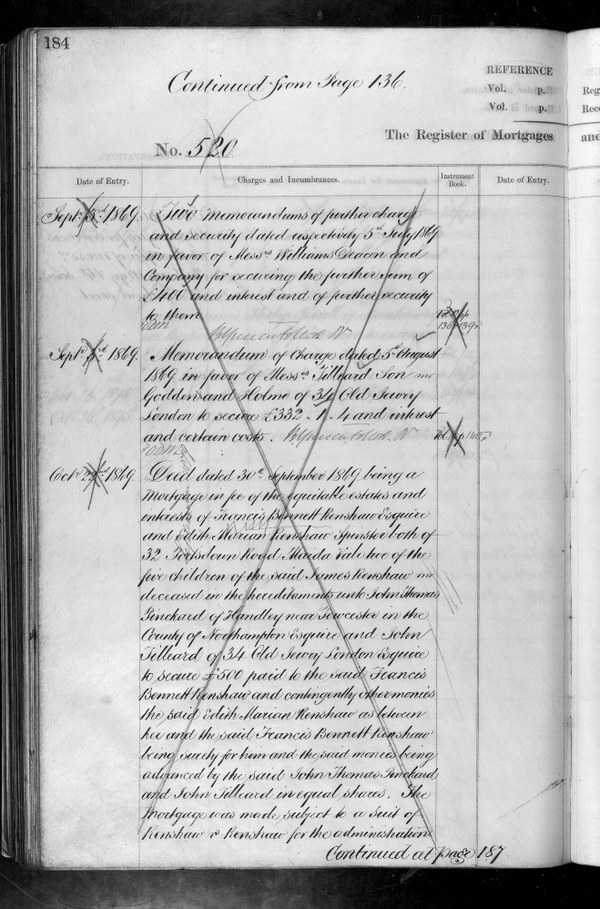 184
Continued from Page 136.
REFERENCE
Vol. p.
Vol. p.
Reg
Rec
No. 520
The Register of Mortgages
and
Date of Entry.
Charges and Incumbrances.
Instrument Book.
Date of Entry.
Sept. 1869.
Two Memorandums of further charge
and security dated respectively 5th July 1869
in favor of Messrs Williams Deacon and
Company for securing the further sum of
£400 and interest and of further security
to them
Sept. 1869.
Memorandum of Charge dated 5th August
1869 in favor of Messrs Tilleard Son
Godden and Holme of 34 Old Jewry
London to secure £332. 1. 4 and interest
and certain costs.
Octr 1869.
Deed dated 30th September 1869 being a
Mortgage in fee of the equitable estates and
interests of Francis Bennett Renshaw Esquire
and Edith Marian Renshaw Spinster both of
32 Portsdown Road Maida Vale two of the
five children of the said James Renshaw
deceased in the hereditaments unto John Thomas
Pinckard of Handley near Towcester in the
County of Northampton Esquire and John
Tilleard of 34 Old Jewry London Esquire
to secure £500 paid to the said Francis
Bennett Renshaw and contingently other monies
the said Edith Marian Renshaw as between
her and the said Francis Bennett Renshaw
being surety for him and the said monies being
advanced by the said John Thomas Pinckard
and John Tilleard in equal shares. The
Mortgage was made subject to a Suit of
Renshaw v Renshaw for the administration
Continued at page 187